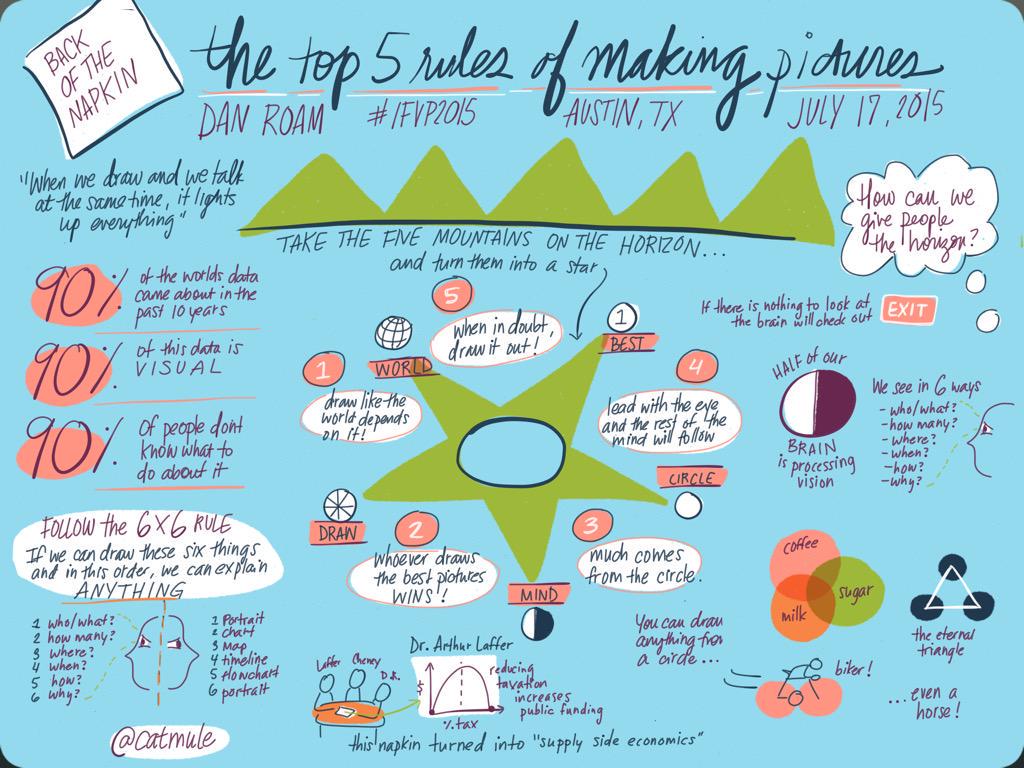 BACK
OF THE
NAPKIN
the top 5 rules of making pictures
DAN ROAM #IFVP2015 AUSTIN, TX JULY 17, 2015
"When we draw and we talk
at the same time, it lights
up everything"
TAKE THE FIVE MOUNTAINS ON THE HORIZON...
and turn them into a star
How can we
give people
the horizon?
90%
of the worlds data
came about in the
past 10 years
90%
of this data is
VISUAL
90%
Of people dont
know what to
do about it
If there is nothing to look at
the brain will check out
EXIT
5
when in doubt,
draw it out!
1
BEST
WORLD
1
draw like the
world depends
on it!
4
lead with the eye
and the rest of the
mind will follow
CIRCLE
DRAW
2
Whoever draws
the best pictures
WINS!
3
much comes
from the circle.
MIND
HALF of our
BRAIN
is processing
vision
We see in 6 ways
- who/what?
- how many?
- where?
- when?
- how?
- why?
FOLLOW the 6x6 RULE
If we can draw these six things
and in this order, we can explain
ANYTHING
1 who/what?
2 how many?
3 where?
4 when?
5 how?
6 why?
1 Portrait
2 chart
3 Map
4 timeline
5 flowchart
6 portrait
@catmule
Laffer Cheney D.R.
Dr. Arthur Laffer
$
% tax
reducing
taxation
increases
public funding
this napkin turned into "supply side economics"
You can draw
anything from
a circle...
coffee
sugar
milk
the eternal
triangle
biker!
...even a
horse!